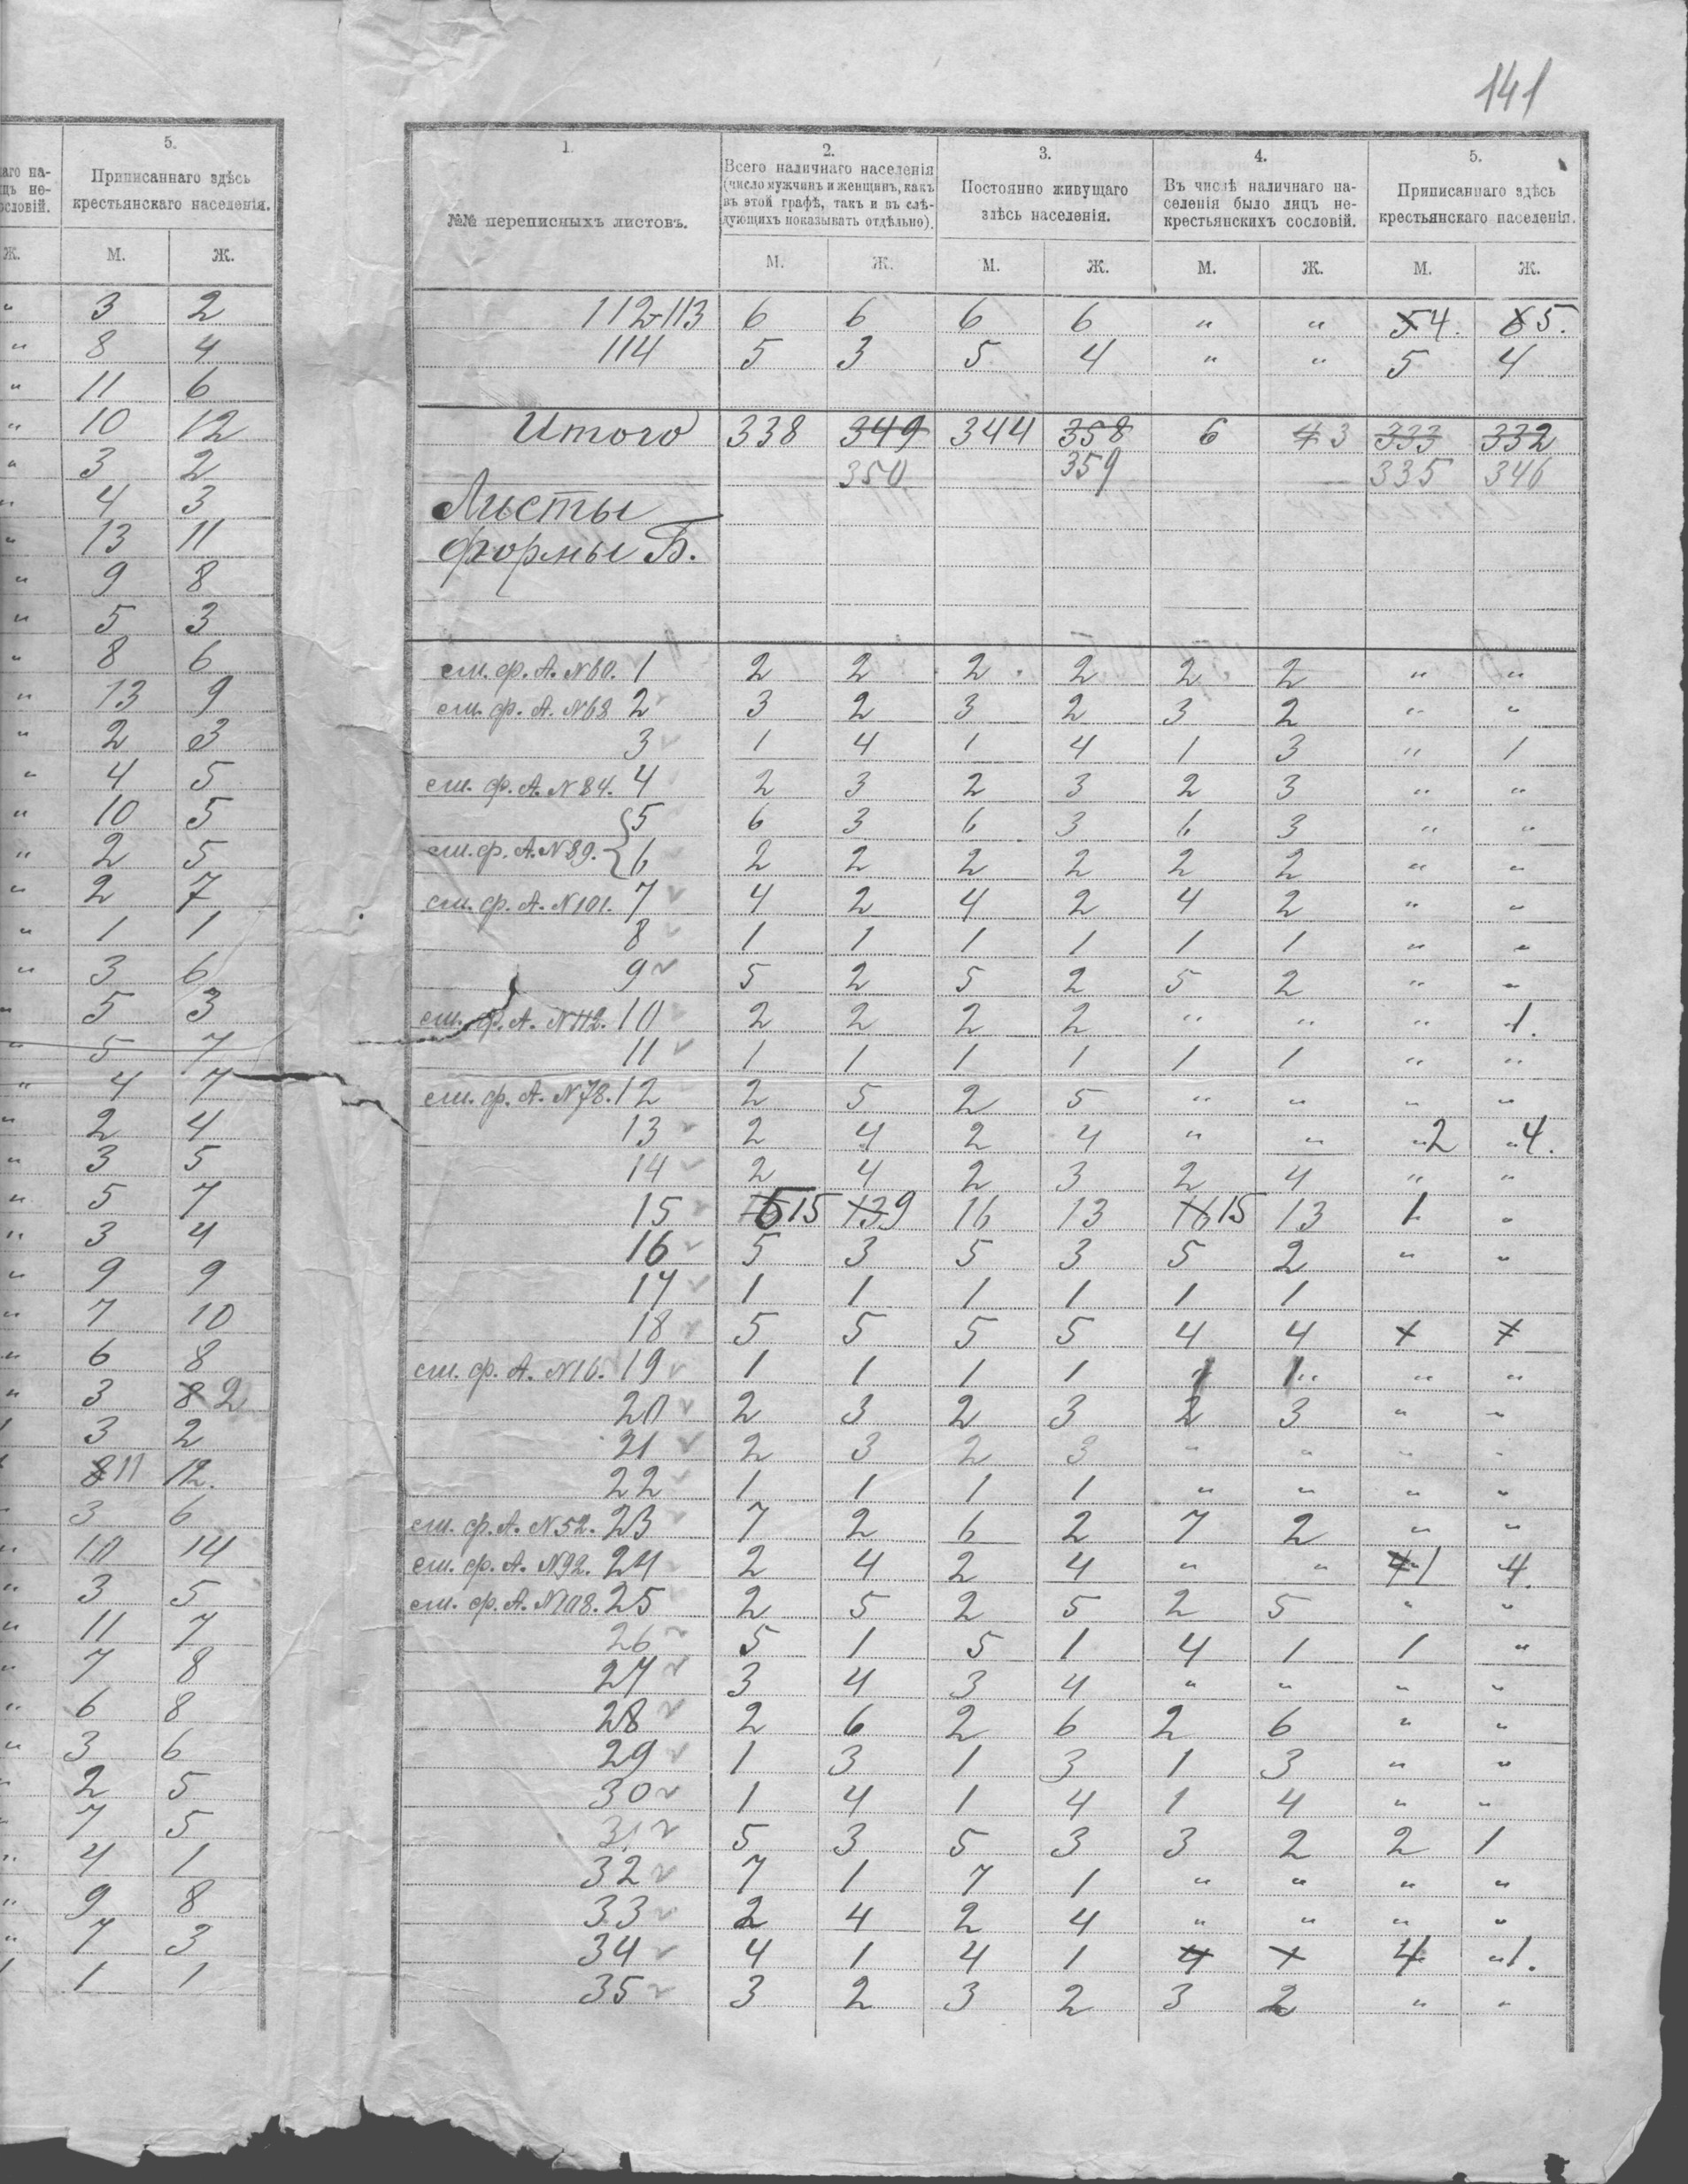 141
аго на-
цъ не-
ословій.
Ж.
5.
Приписаннаго здѣсь
крестьянскаго населенія.
М. Ж.
" 3 2
" 8 4
" 11 6
" 10 12
" 3 2
" 4 3
" 13 11
" 9 8
" 5 3
" 8 6
" 13 9
" 2 3
" 4 5
" 10 5
" 2 5
" 2 7
" 1 1
" 3 6
" 5 3
" 5 7
" 4 7
" 2 4
" 3 5
" 5 7
" 3 4
" 9 9
" 7 10
" 6 8
" 3 8 2
1 3 2
8 11 12.
" 3 6
" 10 14
" 3 5
" 11 7
" 7 8
" 6 8
" 3 6
" 2 5
" 7 5
" 4 1
" 9 8
" 7 3
1 1 1
1.
№№ переписныхъ листовъ.
2.
Всего наличнаго населенія
(число мужчинъ и женщинъ, какъ
въ этой графѣ, такъ и въ слѣ-
дующихъ показывать отдѣльно).
М. Ж.
3.
Постоянно живущаго
здѣсь населенія.
М. Ж.
4.
Въ числѣ наличнаго на-
селенія было лицъ не-
крестьянскихъ сословій.
М. Ж.
5.
Приписаннаго здѣсь
крестьянскаго населенія.
М. Ж.
112-113 6 6 6 6 " " 5 4. 6 5.
114 5 3 5 4 " " 5 4
Итого 338 349 344 358 6 4 3 333 332
350 359 335 346
Листы
формы Б.
см. ф. А. N 60. 1 2 2 2 2 2 2 " "
см. ф. А. N 68 2 3 2 3 2 3 2 " "
3 1 4 1 4 1 3 " 1
см. ф. А. N 84. 4 2 3 2 3 2 3 " "
5 6 3 6 3 6 3 " "
см. ф. А. N 89. 6 2 2 2 2 2 2 " "
см. ф. А. N 101. 7 4 2 4 2 4 2 " "
8 1 1 1 1 1 1 " "
9 5 2 5 2 5 2 " "
см. ф. А. N 112. 10 2 2 2 2 " " " 1.
11 1 1 1 1 1 1 " "
см. ф. А. N 78. 12 2 5 2 5 " " " "
13 2 4 2 4 " " " 2 " 4.
14 2 4 2 3 2 4 " "
15 16 15 13 9 16 13 16 15 13 1 "
16 5 3 5 3 5 2 " "
17 1 1 1 1 1 1
18 5 5 5 5 4 4 1 1
см. ф. А. N 16. 19 1 1 1 1 1 1 " " "
20 2 3 2 3 2 3 " "
21 2 3 2 3 " " " "
22 1 1 1 1 " " " "
см. ф. А. N 52. 23 7 2 6 2 7 2 " "
см. ф. А. N 92. 24 2 4 2 4 " " 4 1 4.
см. ф. А. N 108. 25 2 5 2 5 2 5 " "
26 5 1 5 1 4 1 1 "
27 3 4 3 4 " " " "
28 2 6 2 6 2 6 " "
29 1 3 1 3 1 3 " "
30 1 4 1 4 1 4 " "
31 5 3 5 3 3 2 2 1
32 7 1 7 1 " " " "
33 2 4 2 4 " " " "
34 4 1 4 1 4 1 4 " 1.
35 3 2 3 2 3 2 " "